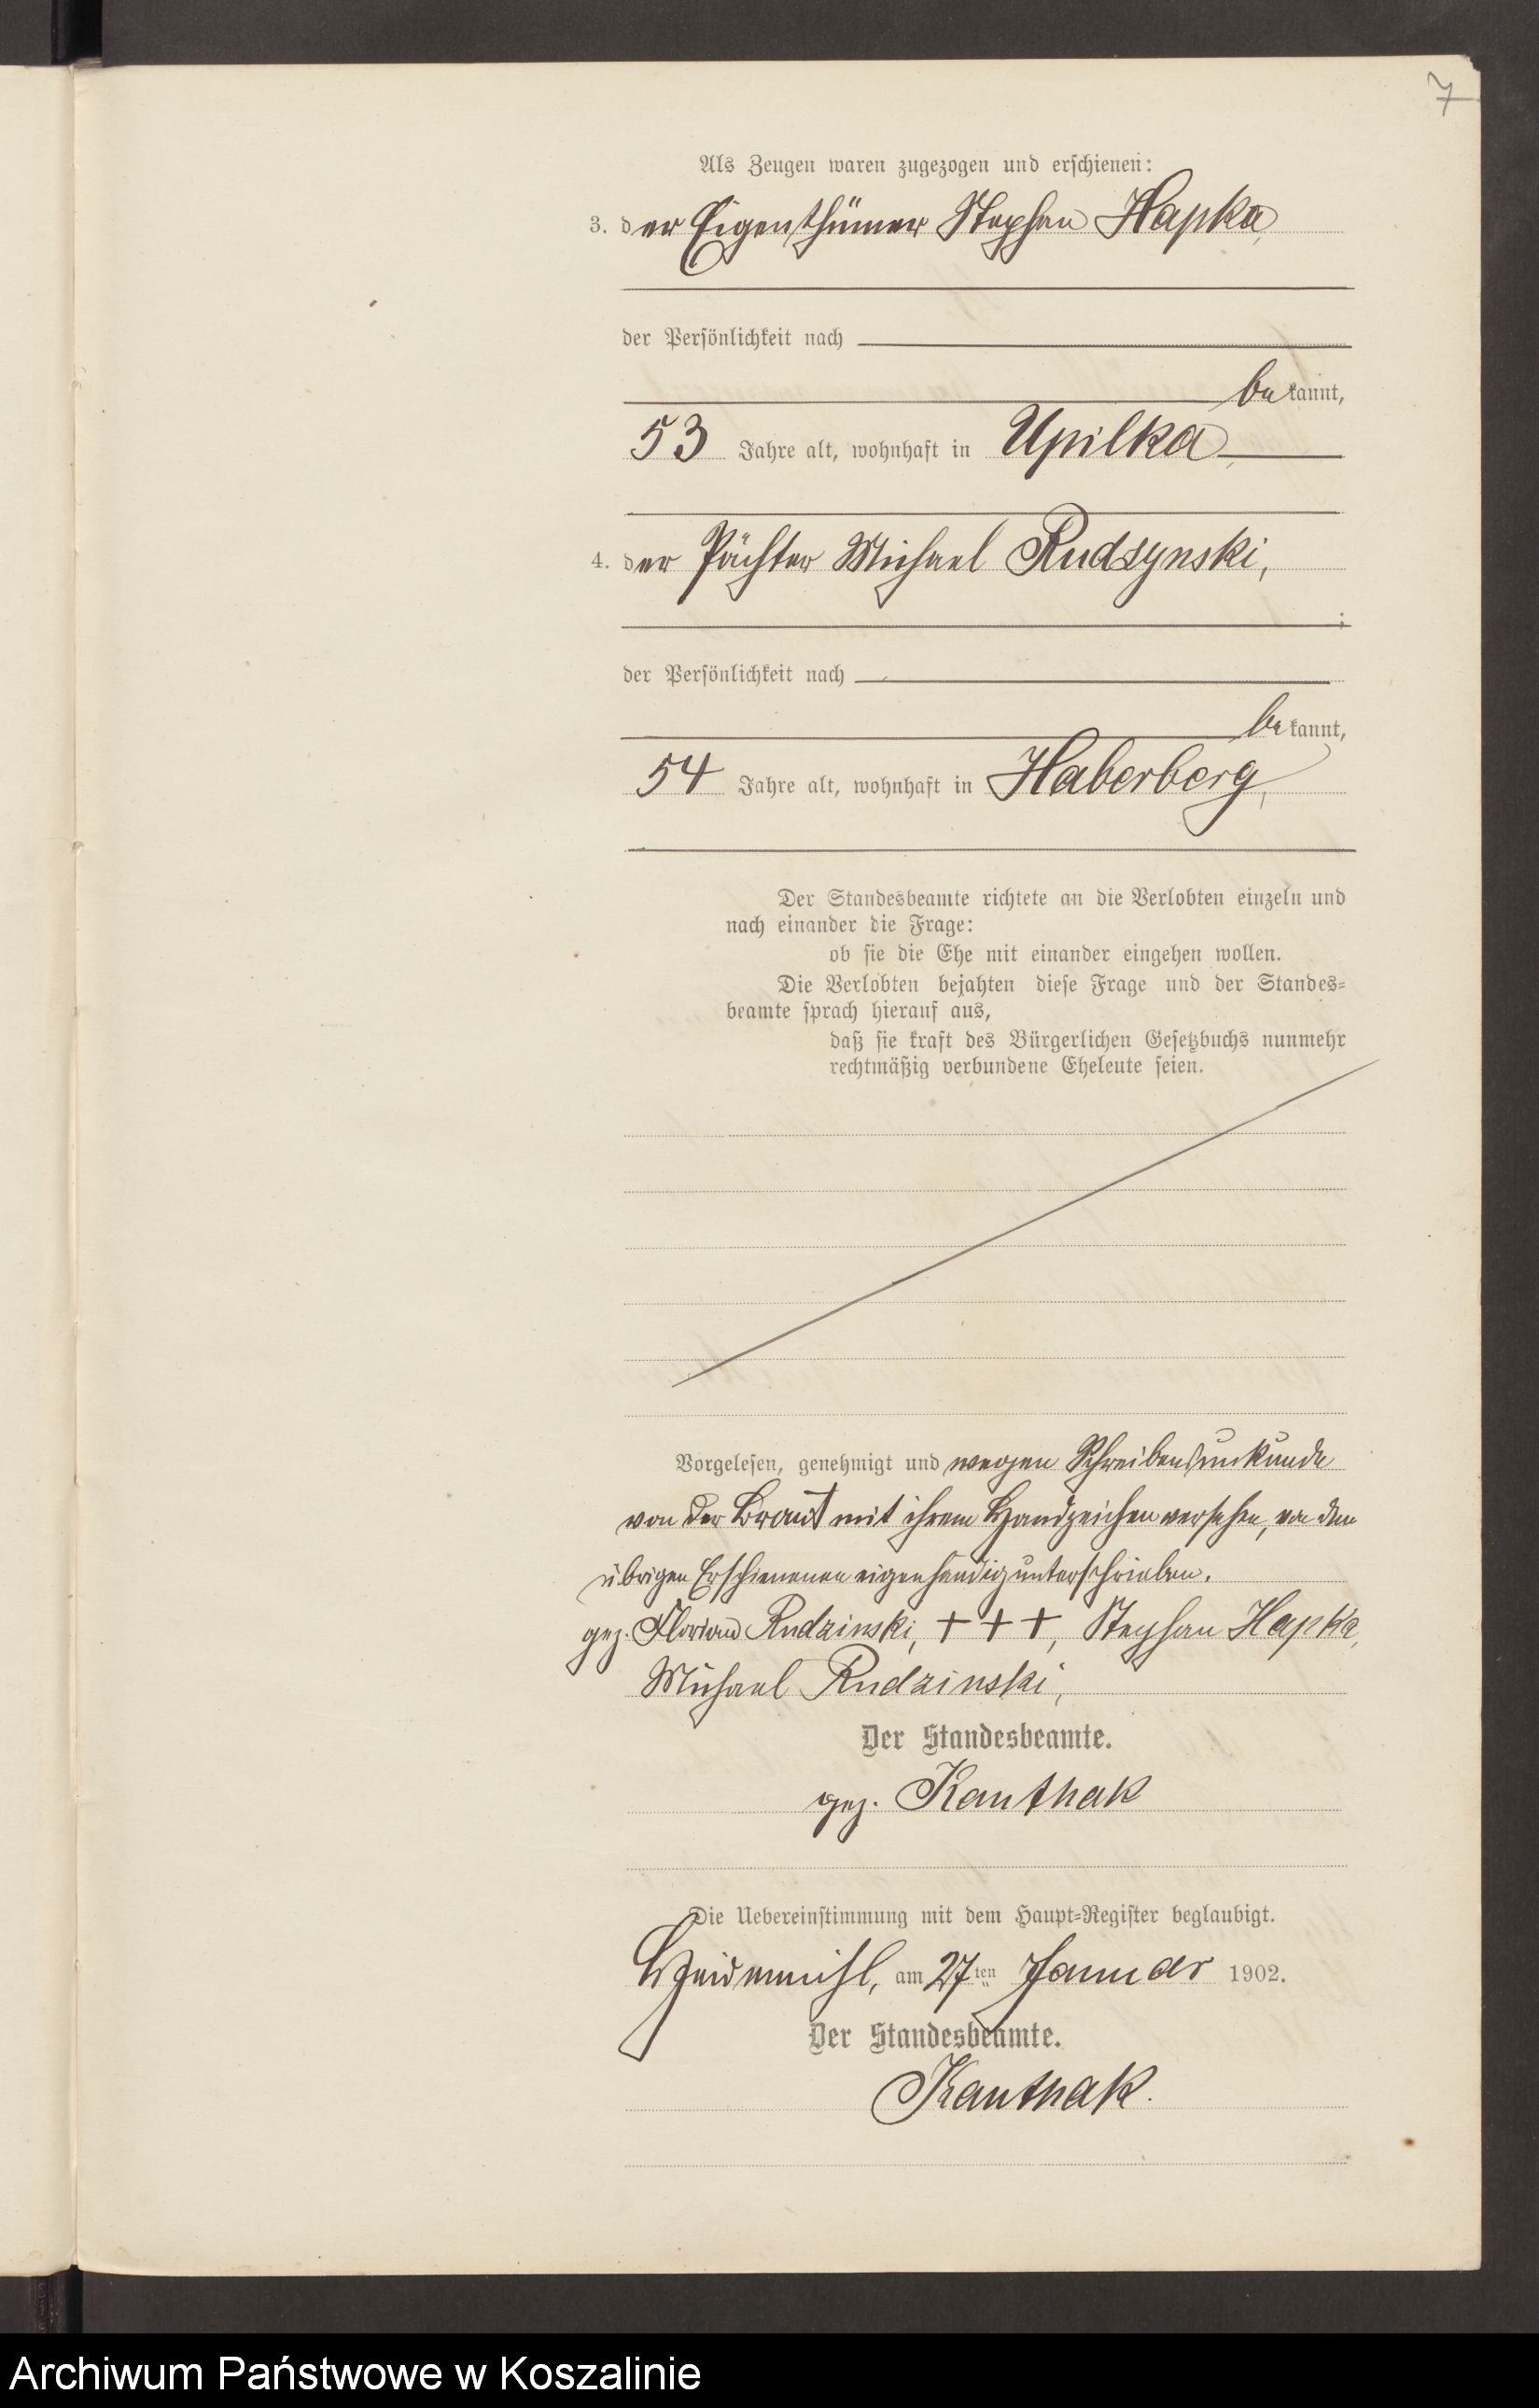 7
Als Zeugen waren zugezogen und erschienen:
3. der Eigenthümer Stephan Hapka,
der Persönlichkeit nach
bekannt,
53 Jahre alt, wohnhaft in Upilka,
4. der Pächter Michael Rudzynski,
;
der Persönlichkeit nach
bekannt,
54 Jahre alt, wohnhaft in Haberberg,
Der Standesbeamte richtete an die Verlobten einzeln und
nach einander die Frage:
ob sie die Ehe mit einander eingehen wollen.
Die Verlobten bejahten diese Frage und der Standes=
beamte sprach hierauf aus,
daß sie kraft des Bürgerlichen Gesetzbuchs nunmehr
rechtmäßig verbundene Eheleute seien.
Vorgelesen, genehmigt und wegen Schreibensunkunde
von der Braut mit ihrem Handzeichen versehen, von den
übrigen Erschienenen eigenhändig unterschrieben.
gez. Florian Rudzinski, + + +, Stephan Hapka,
Michael Rudzinski,
Der Standesbeamte.
gez. Kanthak
Die Uebereinstimmung mit dem Haupt=Register beglaubigt.
Heidemühl, am 27ten Januar 1902.
Der Standesbeamte.
Kanthak.
Archiwum Państwowe w Koszalinie